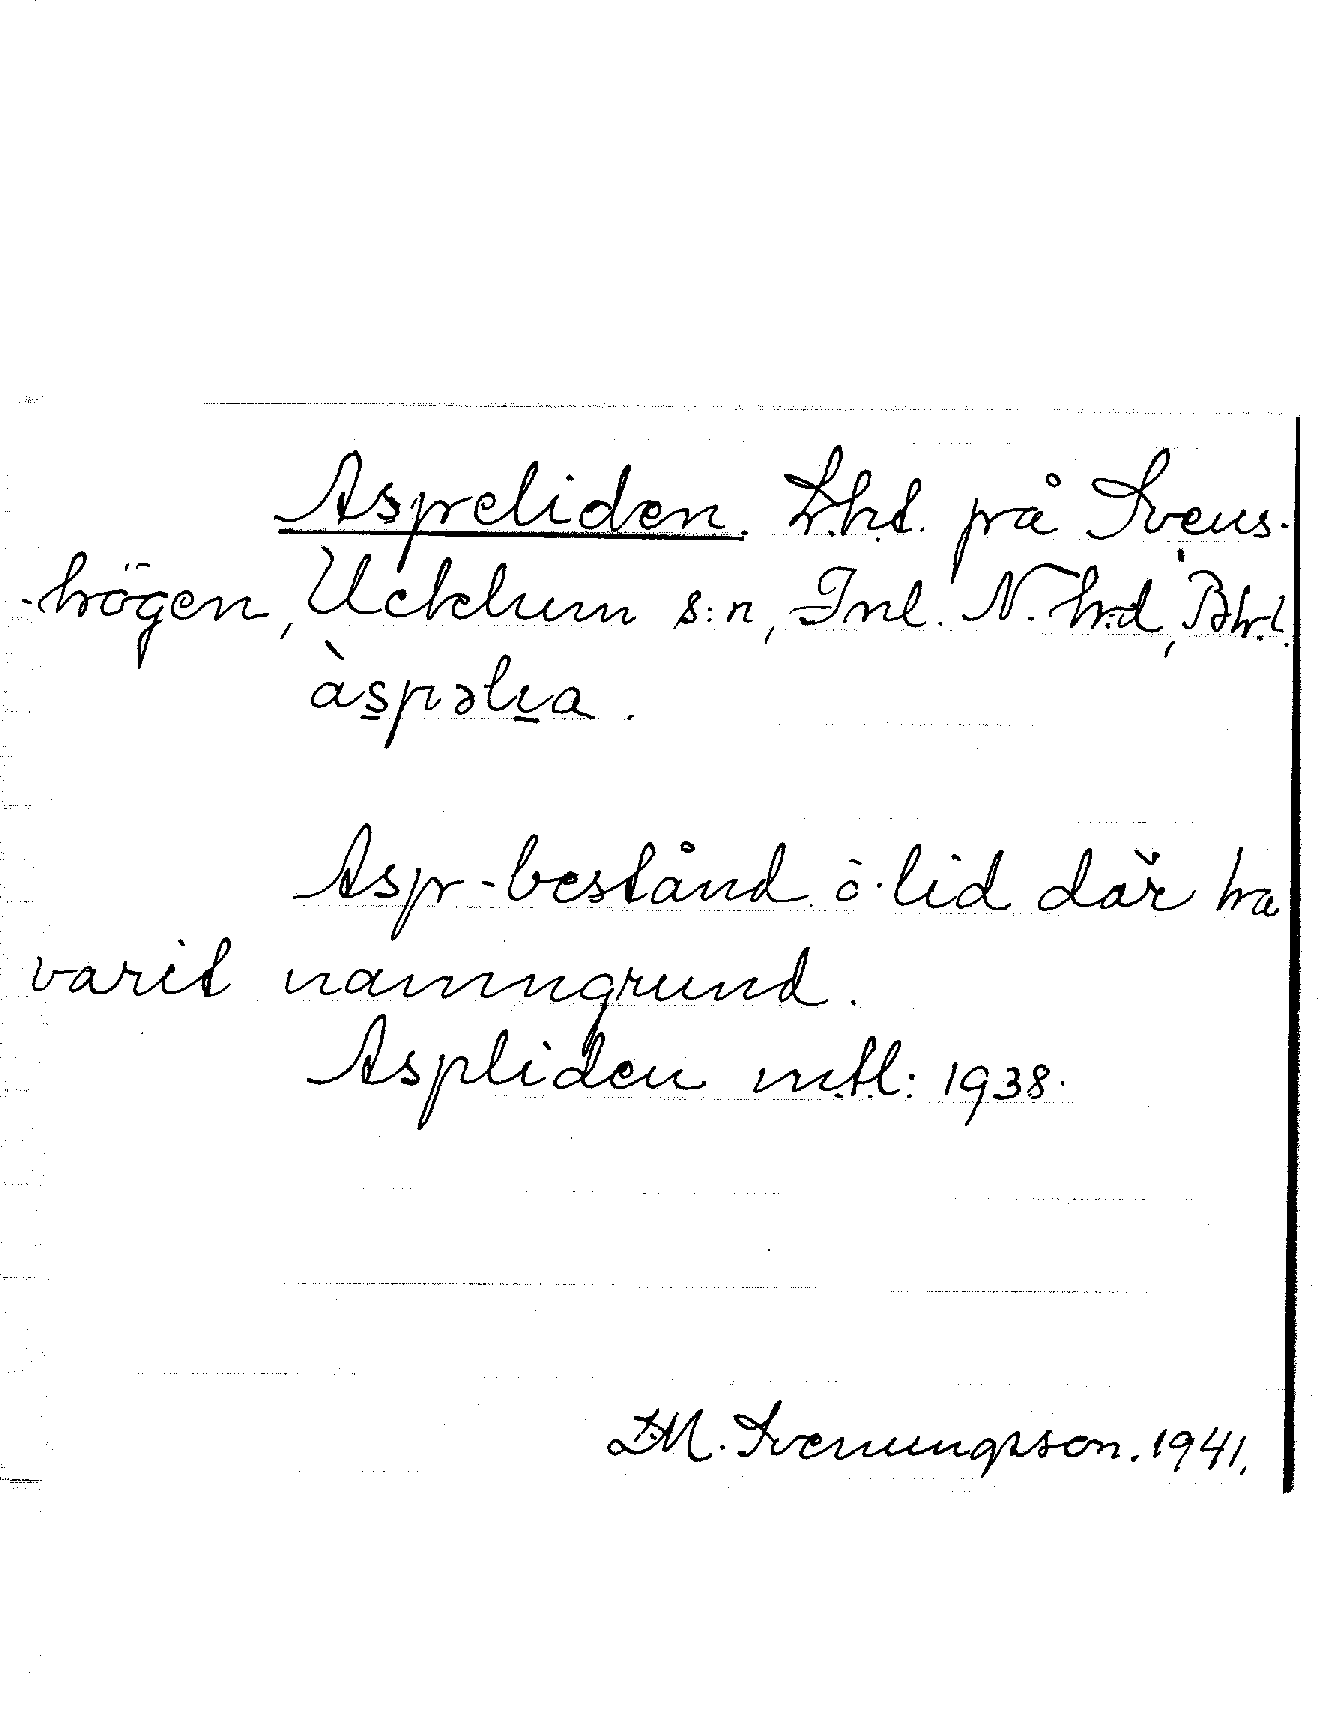 Aspeliden. Lht. på Svens-
-högen, Ucklum s:n, Inl. N. hd, Bhl.
àspəlia.
Asp-bestånd o. lid där ha
varit namngrund.
Aspliden mtl: 1938.
D.M. Svenungsson. 1941.